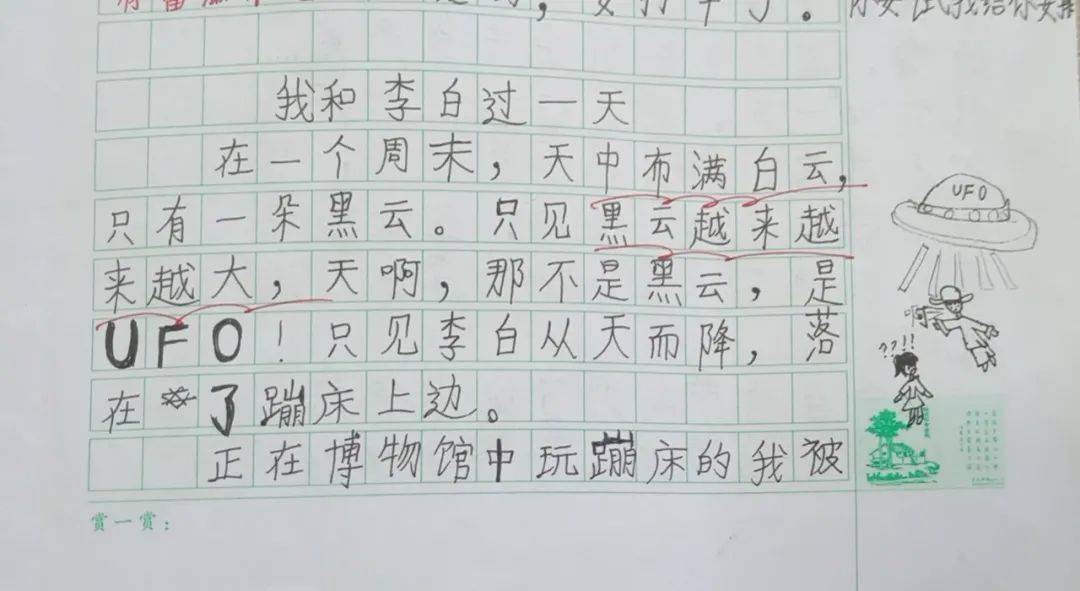 ，要打
。你要试我给你
我和李白过一天
在一个周末，天中布满白云，
只有一朵黑云。只见黑云越来越
来越大，天啊，那不是黑云，是
UFO！只见李白从天而降，落
在了蹦床上边。
正在博物馆中玩蹦床的我被
UFO
啊
??!!
赏一赏：